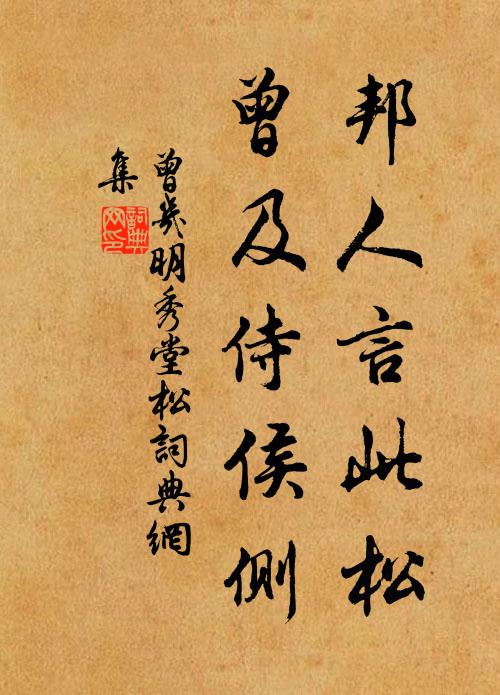 邦人言此松
曾及侍侯側
曾幾明秀堂松詞典網
集
詞典
网印